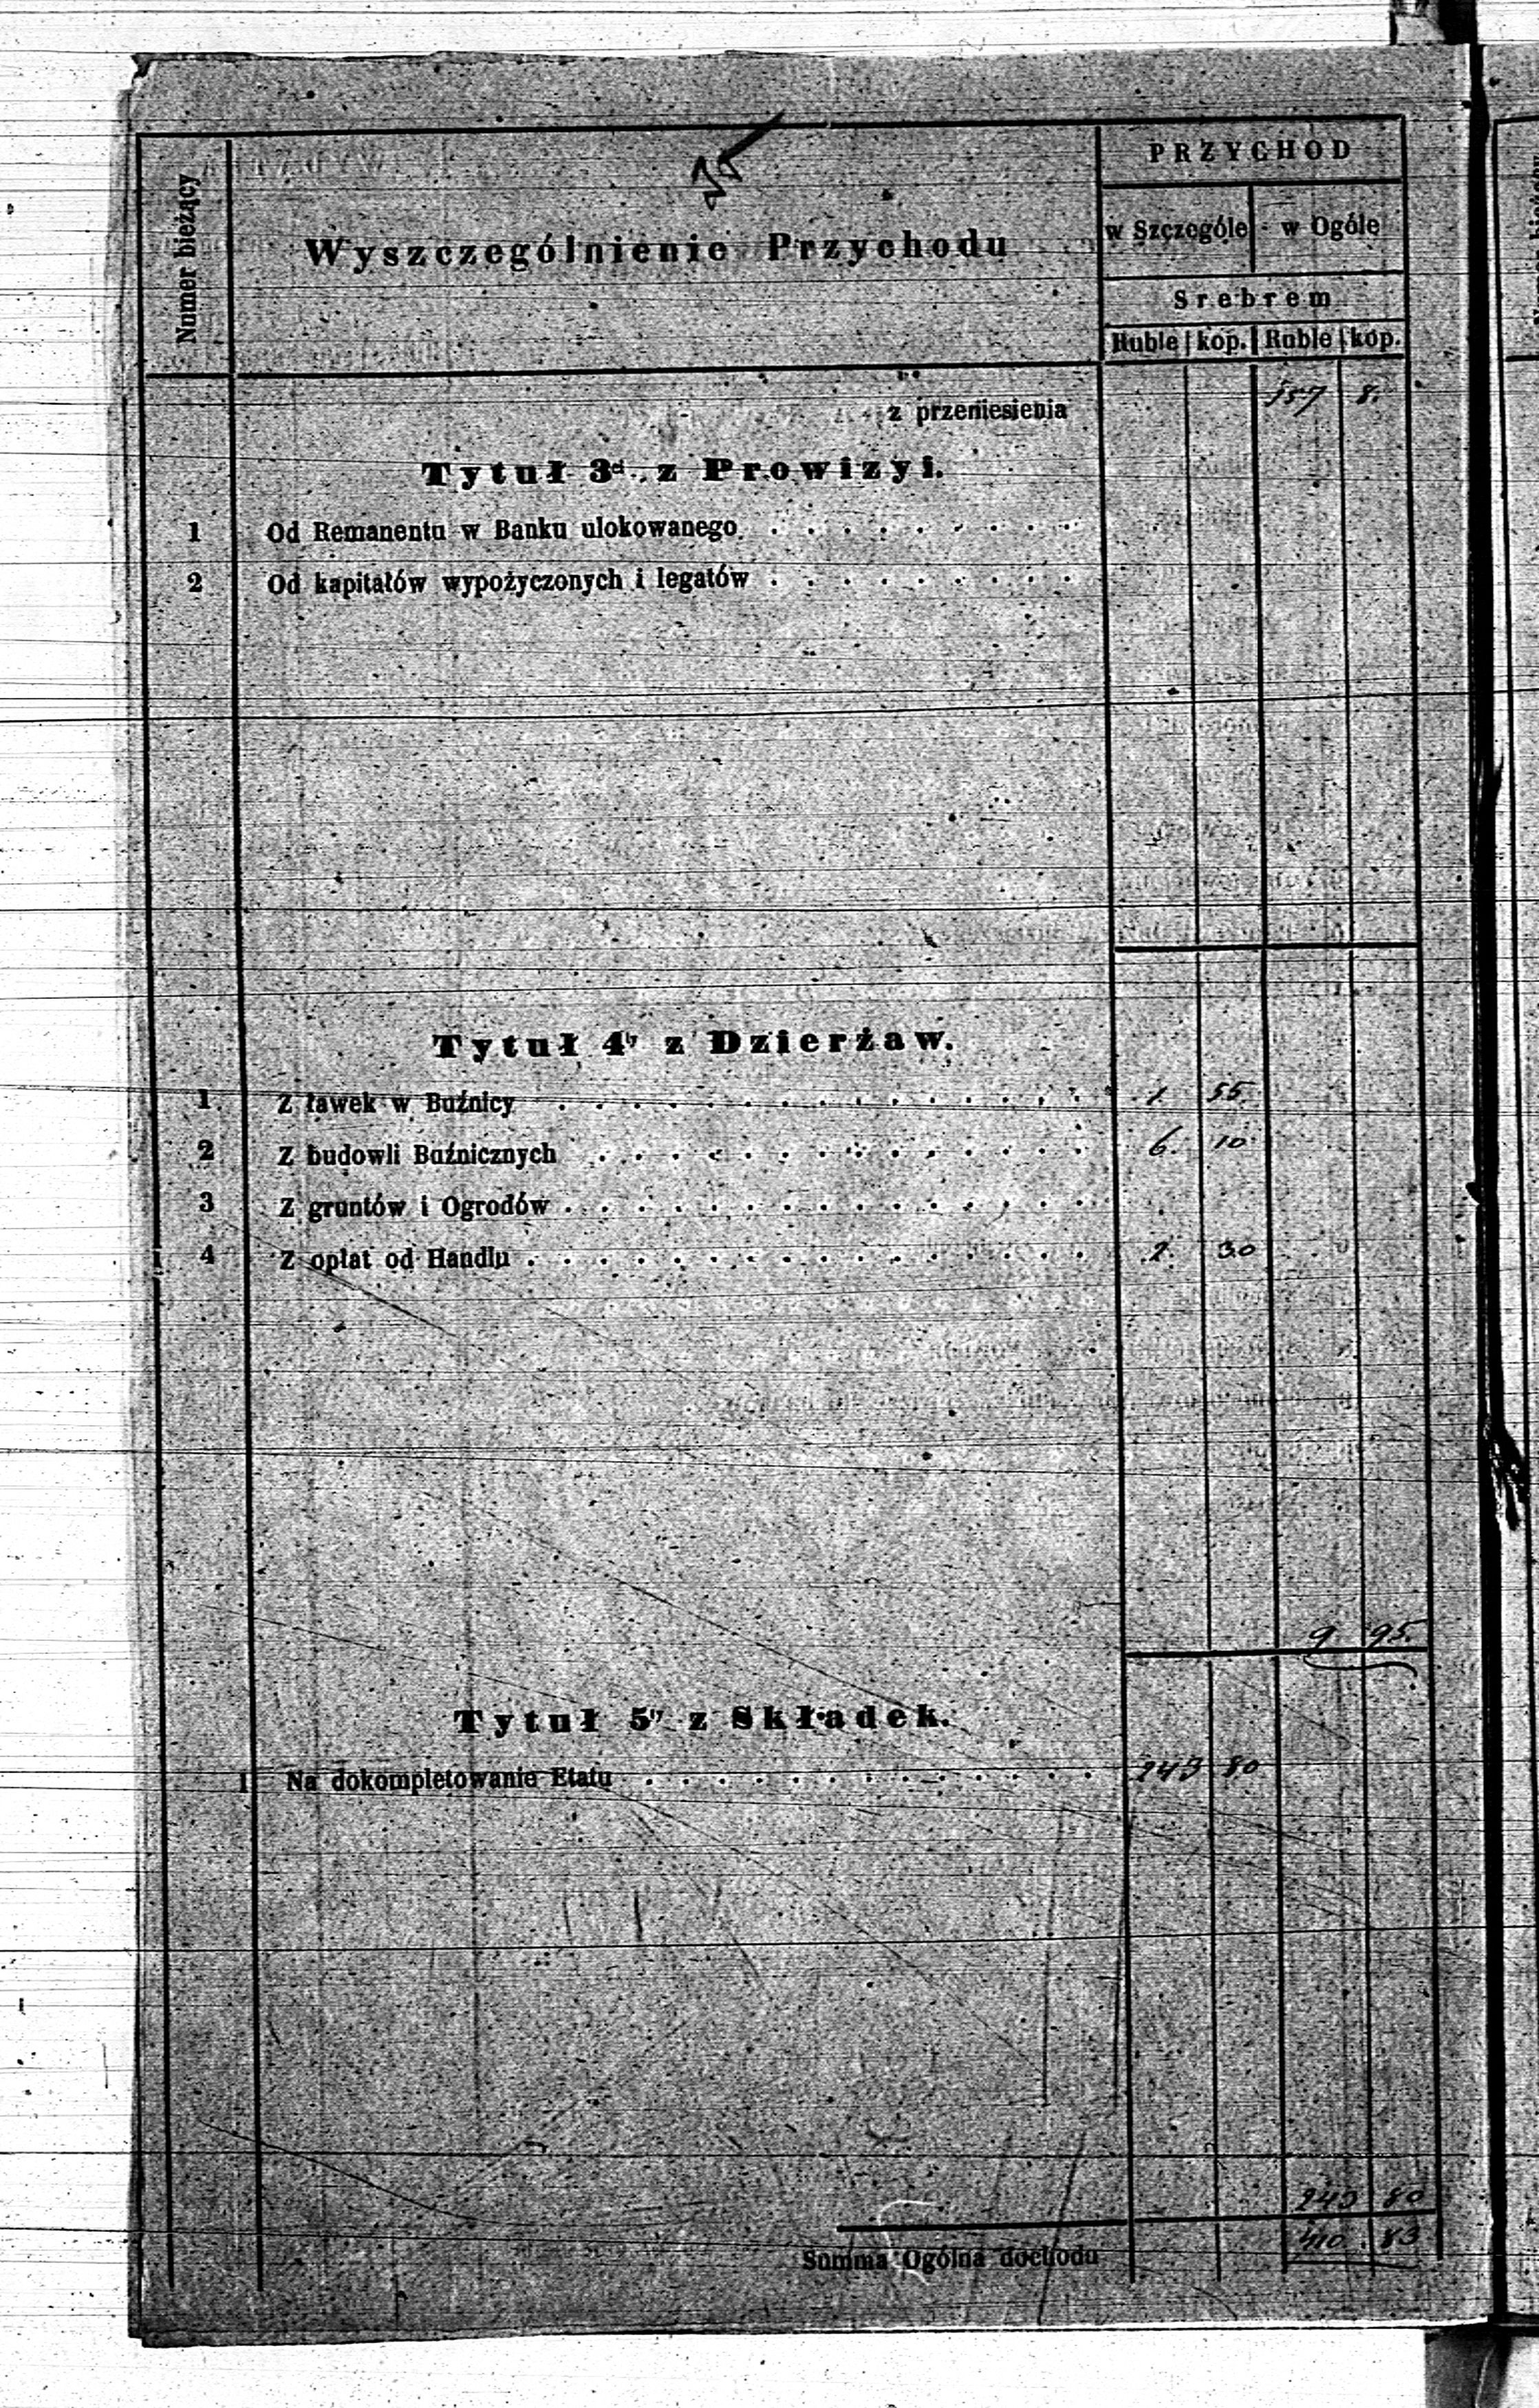 Numer bieżący
Wyszczególnienie Przychodu
PRZYCHOD
w Szczególe w Ogóle
Srebrem
Ruble kop. Ruble kop.
z przeniesienia 157 8.
Tytuł 3ci z Prowizyi.
1 Od Remanentu w Banku ulokowanego
2 Od kapitałów wypożyczonych i legatów
Tytuł 4ty z Dzierżaw.
1 Z ławek w Buźnicy 1 55
2 Z budowli Buźnicznych 6. 10
3 Z gruntów i Ogrodów
4 Z opłat od Handlu 2. 30
9 95.
Tytuł 5ty z Składek.
1 Na dokompletowanie Etatu 243 80
243 80
Summa Ogólna dochodu 410 83